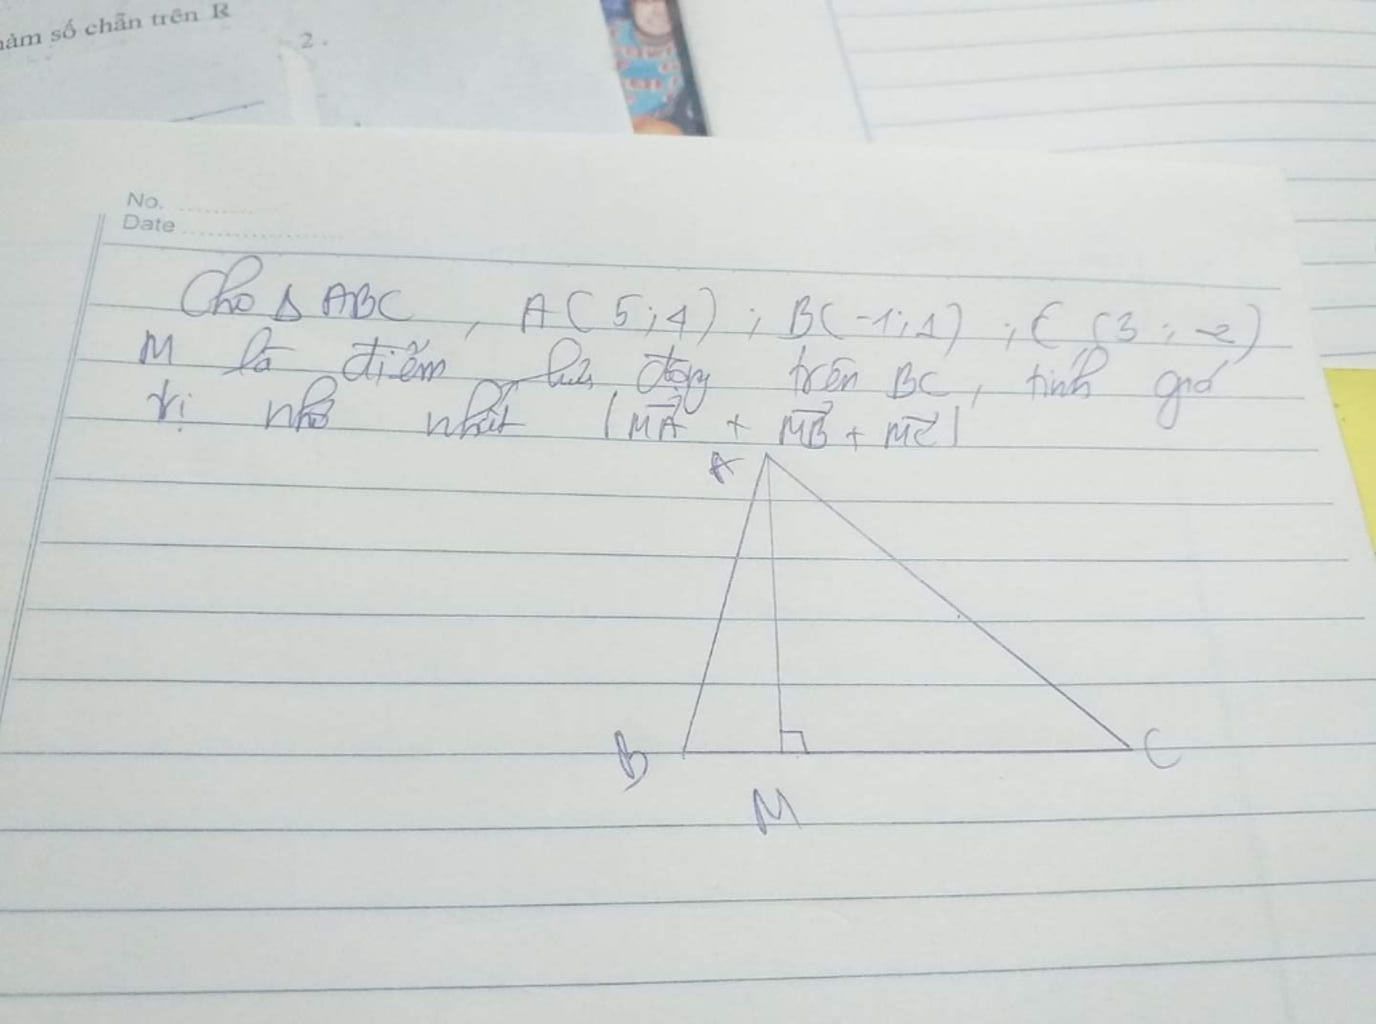 hàm số chẵn trên R
2.
No.
Date
Cho Δ ABC, A(5;4); B(-1;1); C(3;-2)
M là điểm lưu động trên BC, tính giá
trị nhỏ nhất |MA + MB + MC|
A
B
C
M